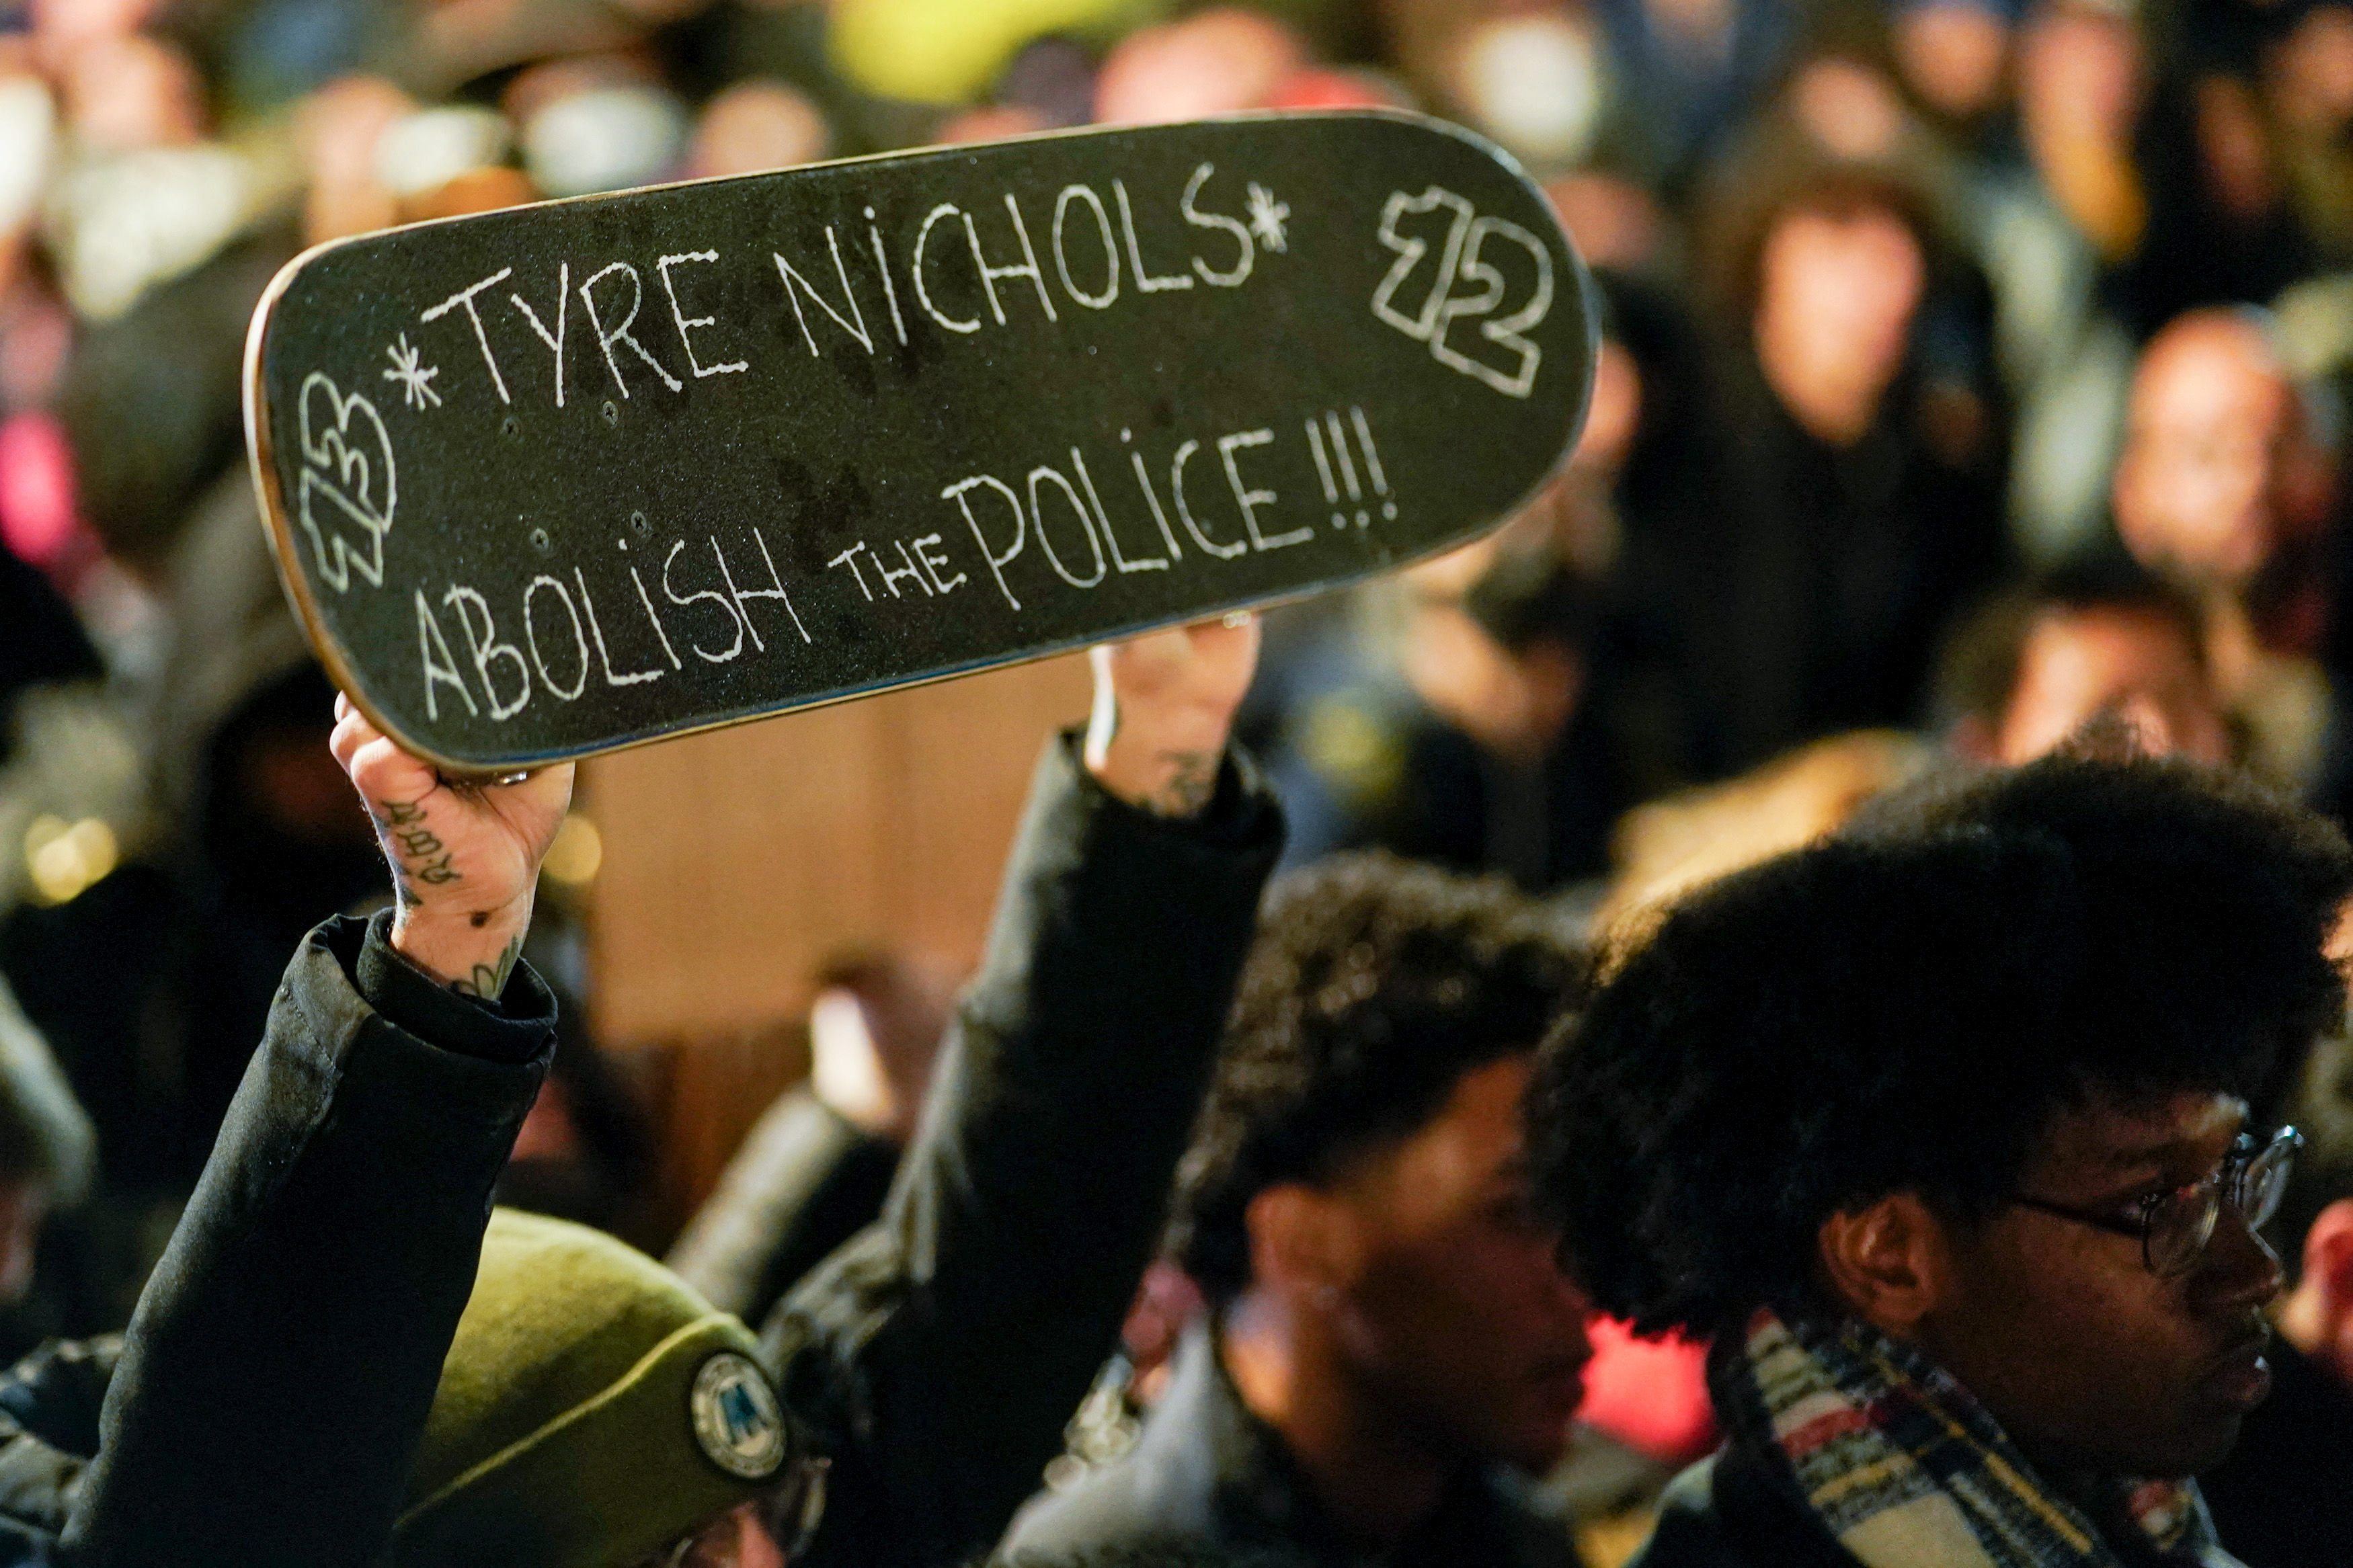 *TYRE NICHOLS*
12
13
ABOLISH THE POLICE!!!